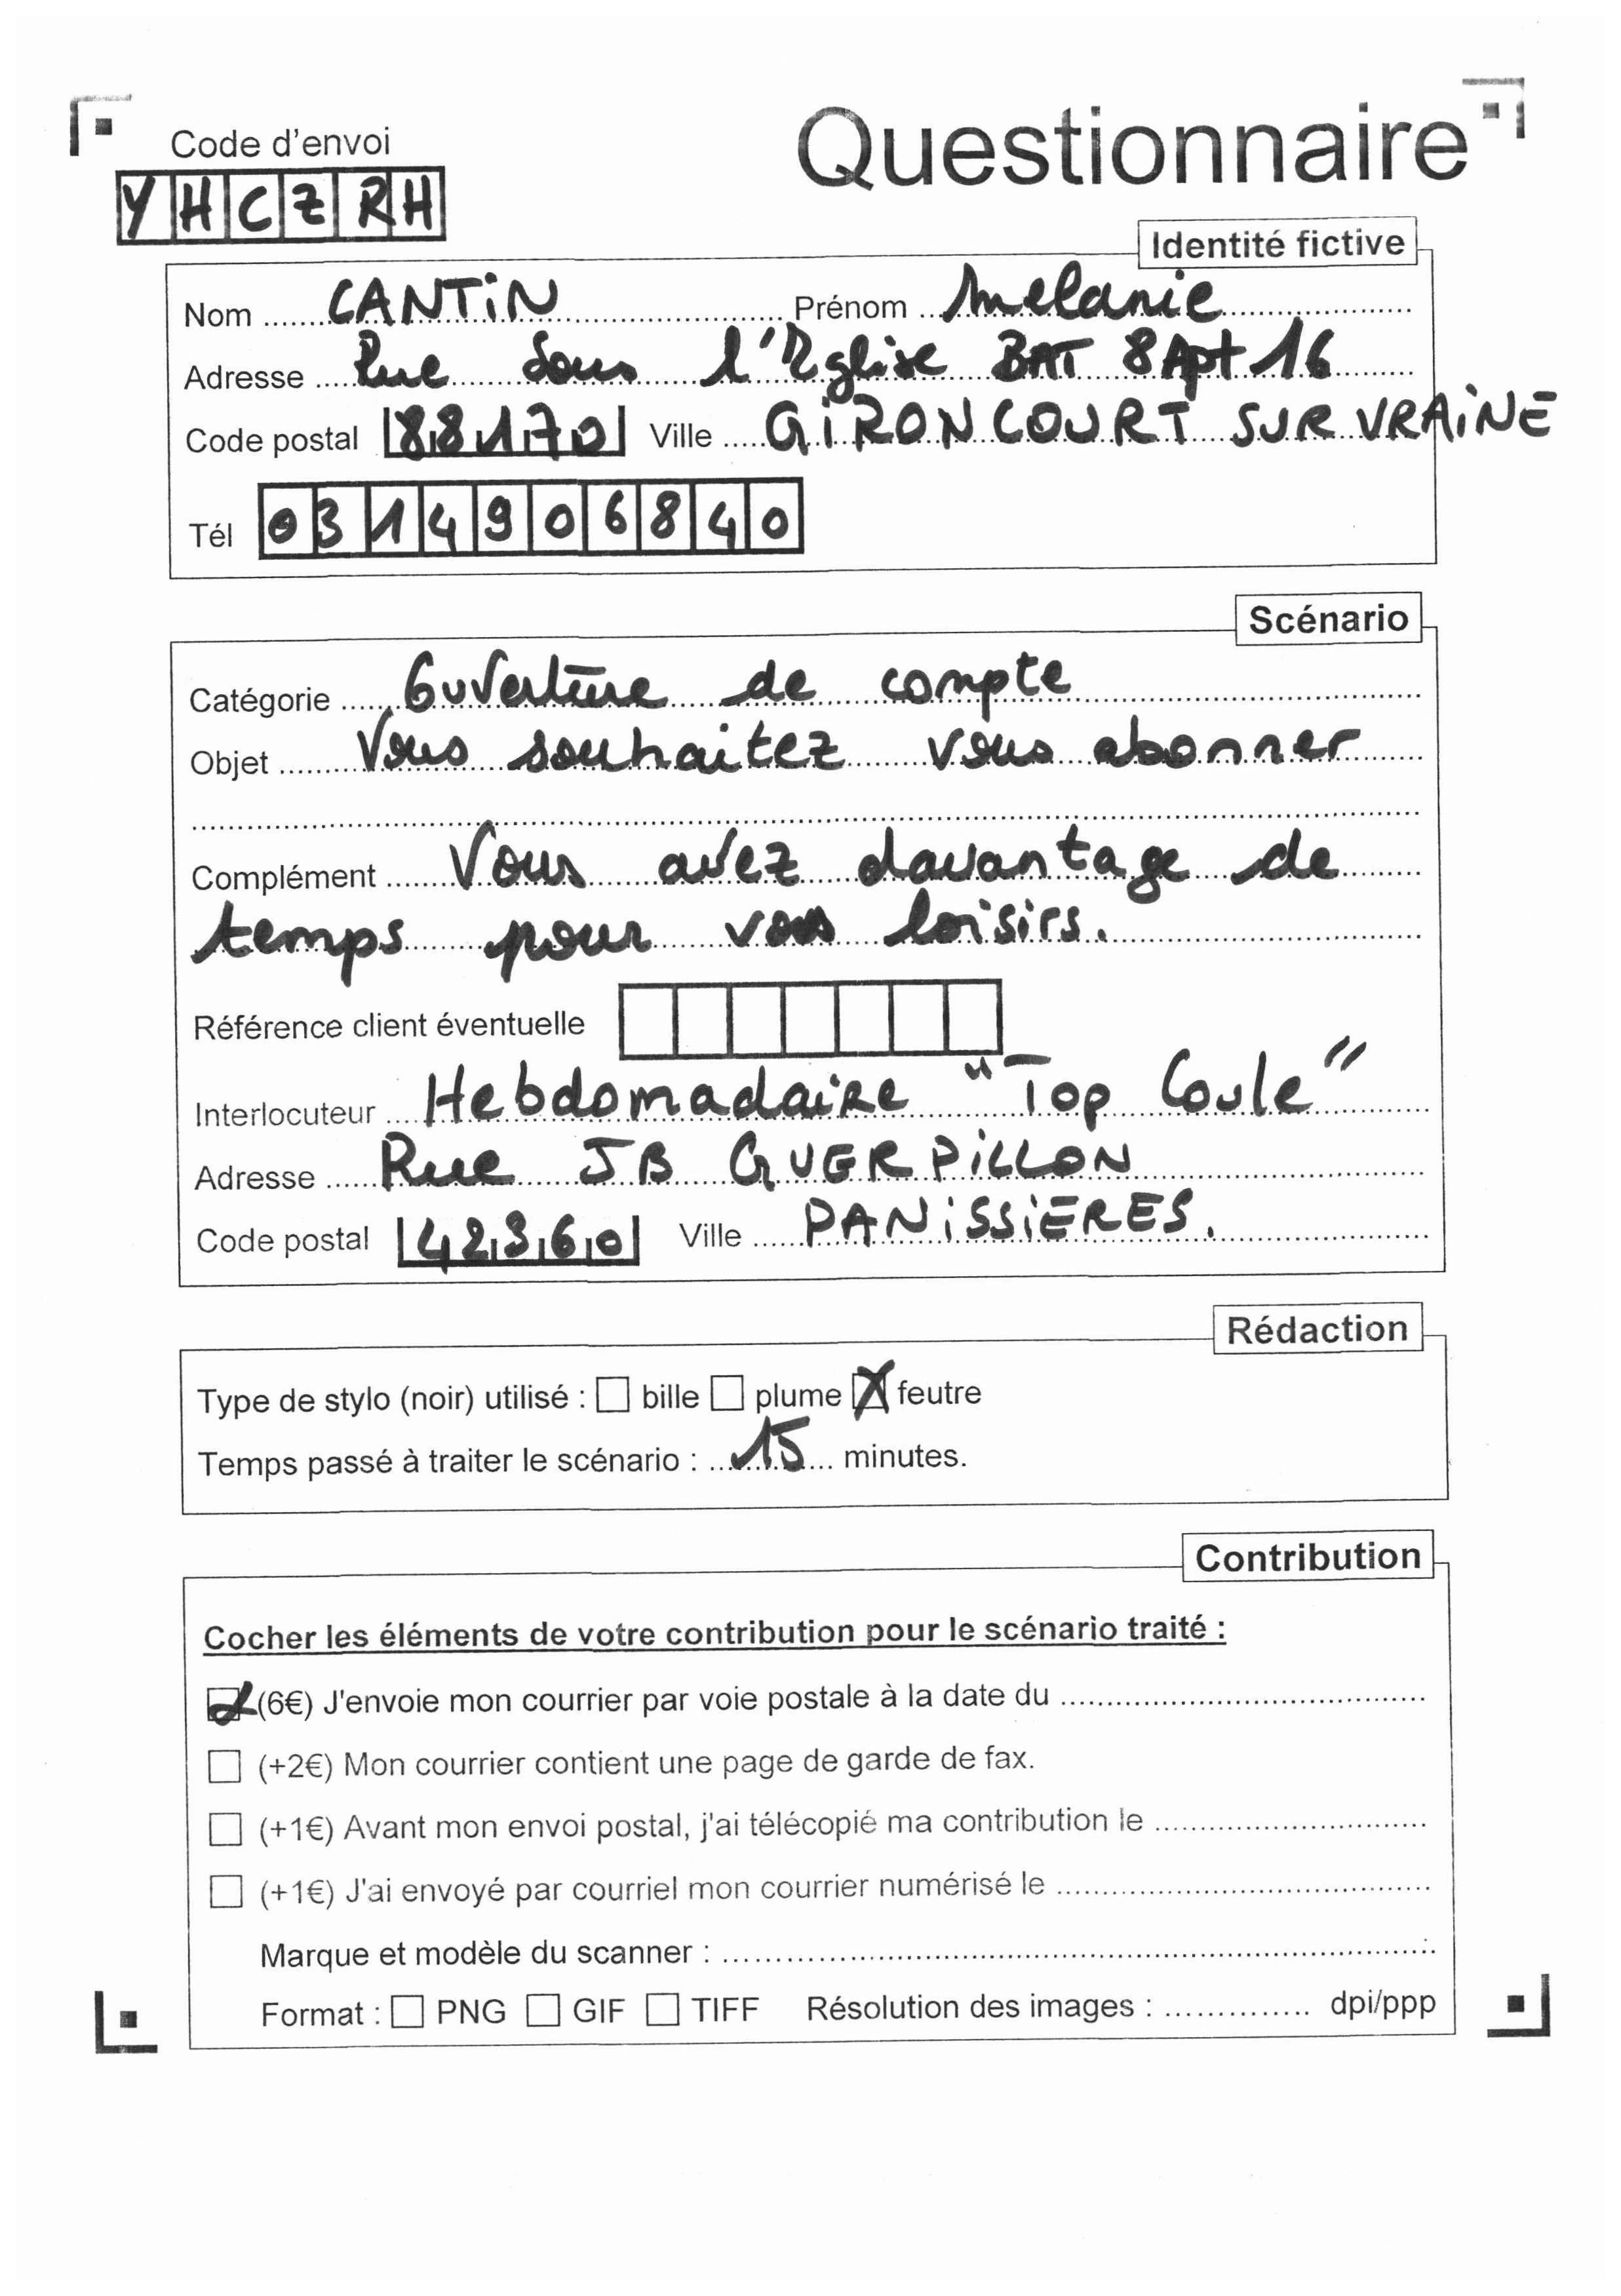 Code d'envoi
Questionnaire
YHCZRH
Identité fictive
Nom CANTiN Prénom Melanie
Adresse Rue Sous l'Eglise BAT 8 Apt 16
Code postal 88170 Ville GiRONCOURT SUR VRAiNE
Tél 0314906840
Scénario
Catégorie Ouverture de compte
Objet Vous souhaitez vous abonner
Complément Vous avez davantage de
temps pour vos loisirs.
Référence client éventuelle
Interlocuteur Hebdomadaire "Top Coule"
Adresse Rue JB GUERPiLLON
Code postal 42360 Ville PANiSSiERES.
Rédaction
Type de stylo (noir) utilisé : bille plume feutre
Temps passé à traiter le scénario : 15 minutes.
Contribution
Cocher les éléments de votre contribution pour le scénario traité :
(6€) J'envoie mon courrier par voie postale à la date du
(+2€) Mon courrier contient une page de garde de fax.
(+1€) Avant mon envoi postal, j'ai télécopié ma contribution le
(+1€) J'ai envoyé par courriel mon courrier numérisé le
Marque et modèle du scanner :
Format : PNG GIF TIFF Résolution des images : dpi/ppp